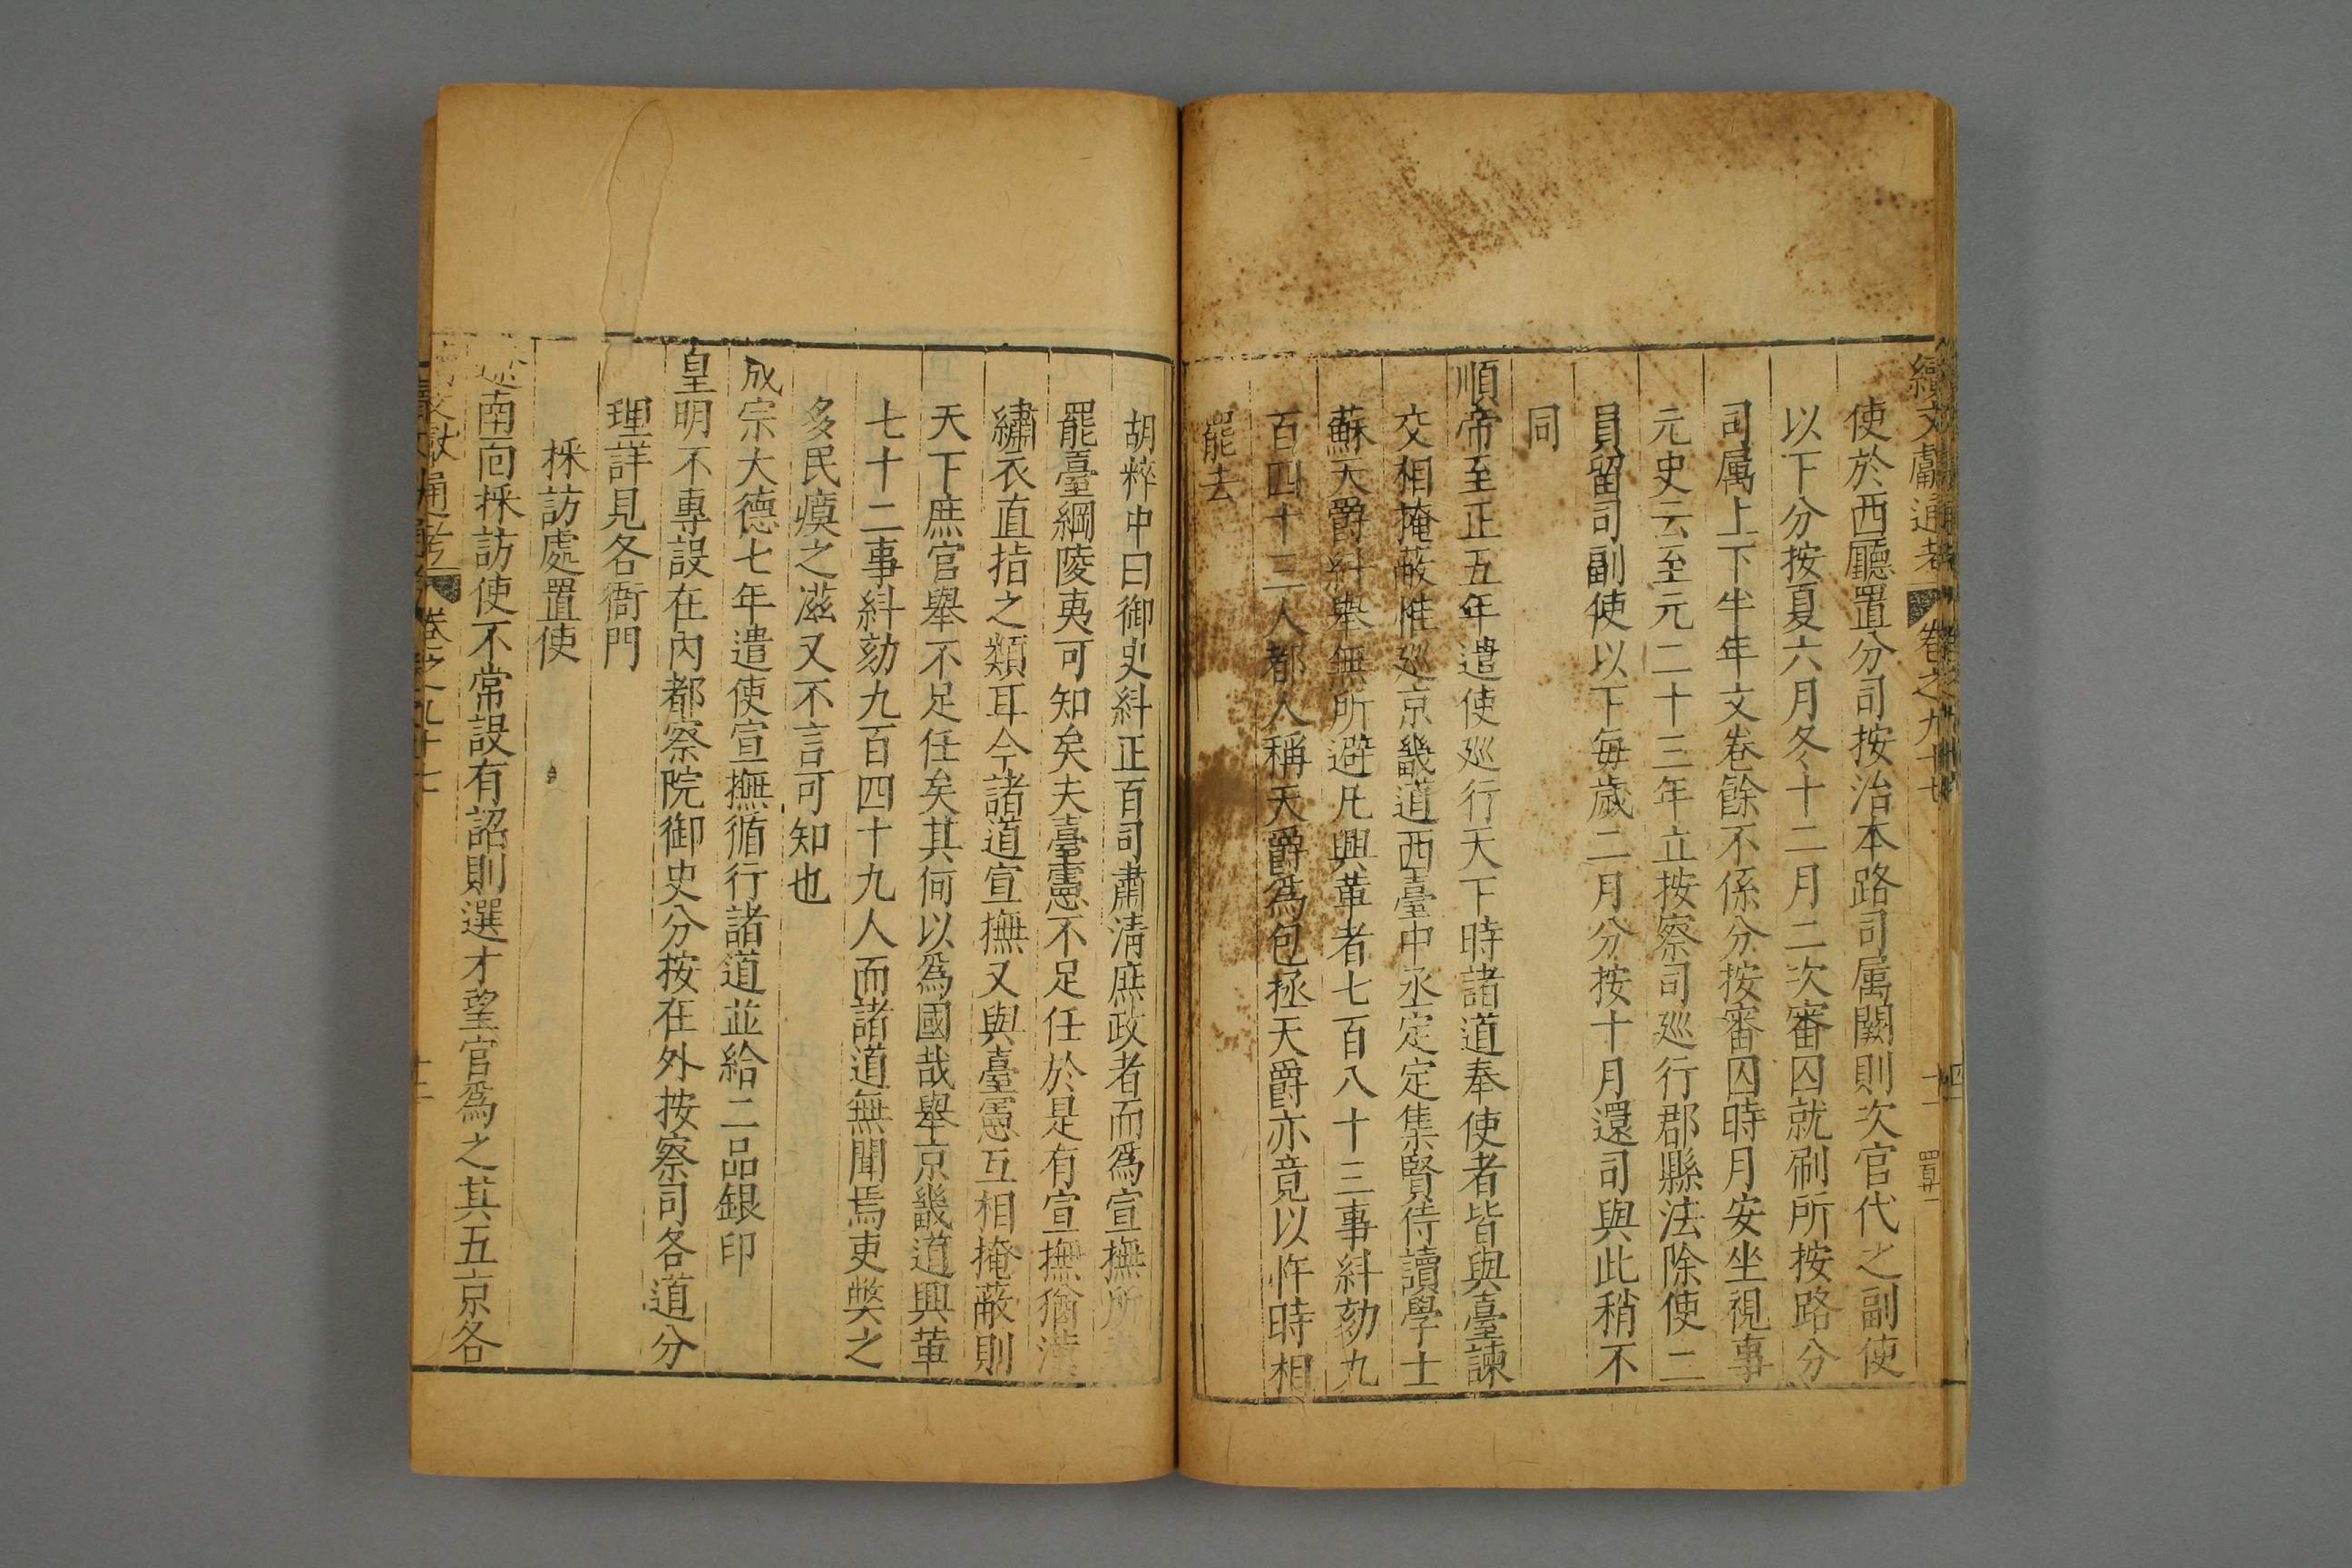 續文獻通考 卷之九十七 十一
使於西廳置分司按治本路司属闕則次官代之副使
以下分按夏六月冬十二月二次審囚就刷所按路分
司属上下半年文卷餘不係分按審囚時月安坐視事
元史云至元二十三年立按察司廵行郡縣法除使二
員留司副使以下毎歲二月分按十月還司與此稍不
同
順帝至正五年遣使廵行天下時諸道奉使者皆與臺諫
交相掩蔽惟廵京畿道西臺中丞定定集賢侍讀學士
蘇天爵糾舉無所避凡興革者七百八十三事糾劾九
百四十三人都人稱天爵為包拯天爵亦竟以忤時相
罷去
胡粹中曰御史糾正百司肅清庶政者而爲宣撫所
罷臺綱陵夷可知矣夫臺憲不足任於是有宣撫猶漢
繡衣直指之類耳今諸道宣撫又與臺憲互相掩蔽則
天下庶官舉不足任矣其何以爲國哉舉京畿道興革
七十二事糾劾九百四十九人而諸道無聞焉吏獘之
多民瘼之滋又不言可知也
成宗大德七年遣使宣撫循行諸道並給二品銀印
皇明不專設在內都察院御史分按在外按察司各道分
理詳見各衙門
採訪處置使
遼南面採訪使不常設有詔則選才望官爲之其五京各
文獻通考 卷之九十七 十二